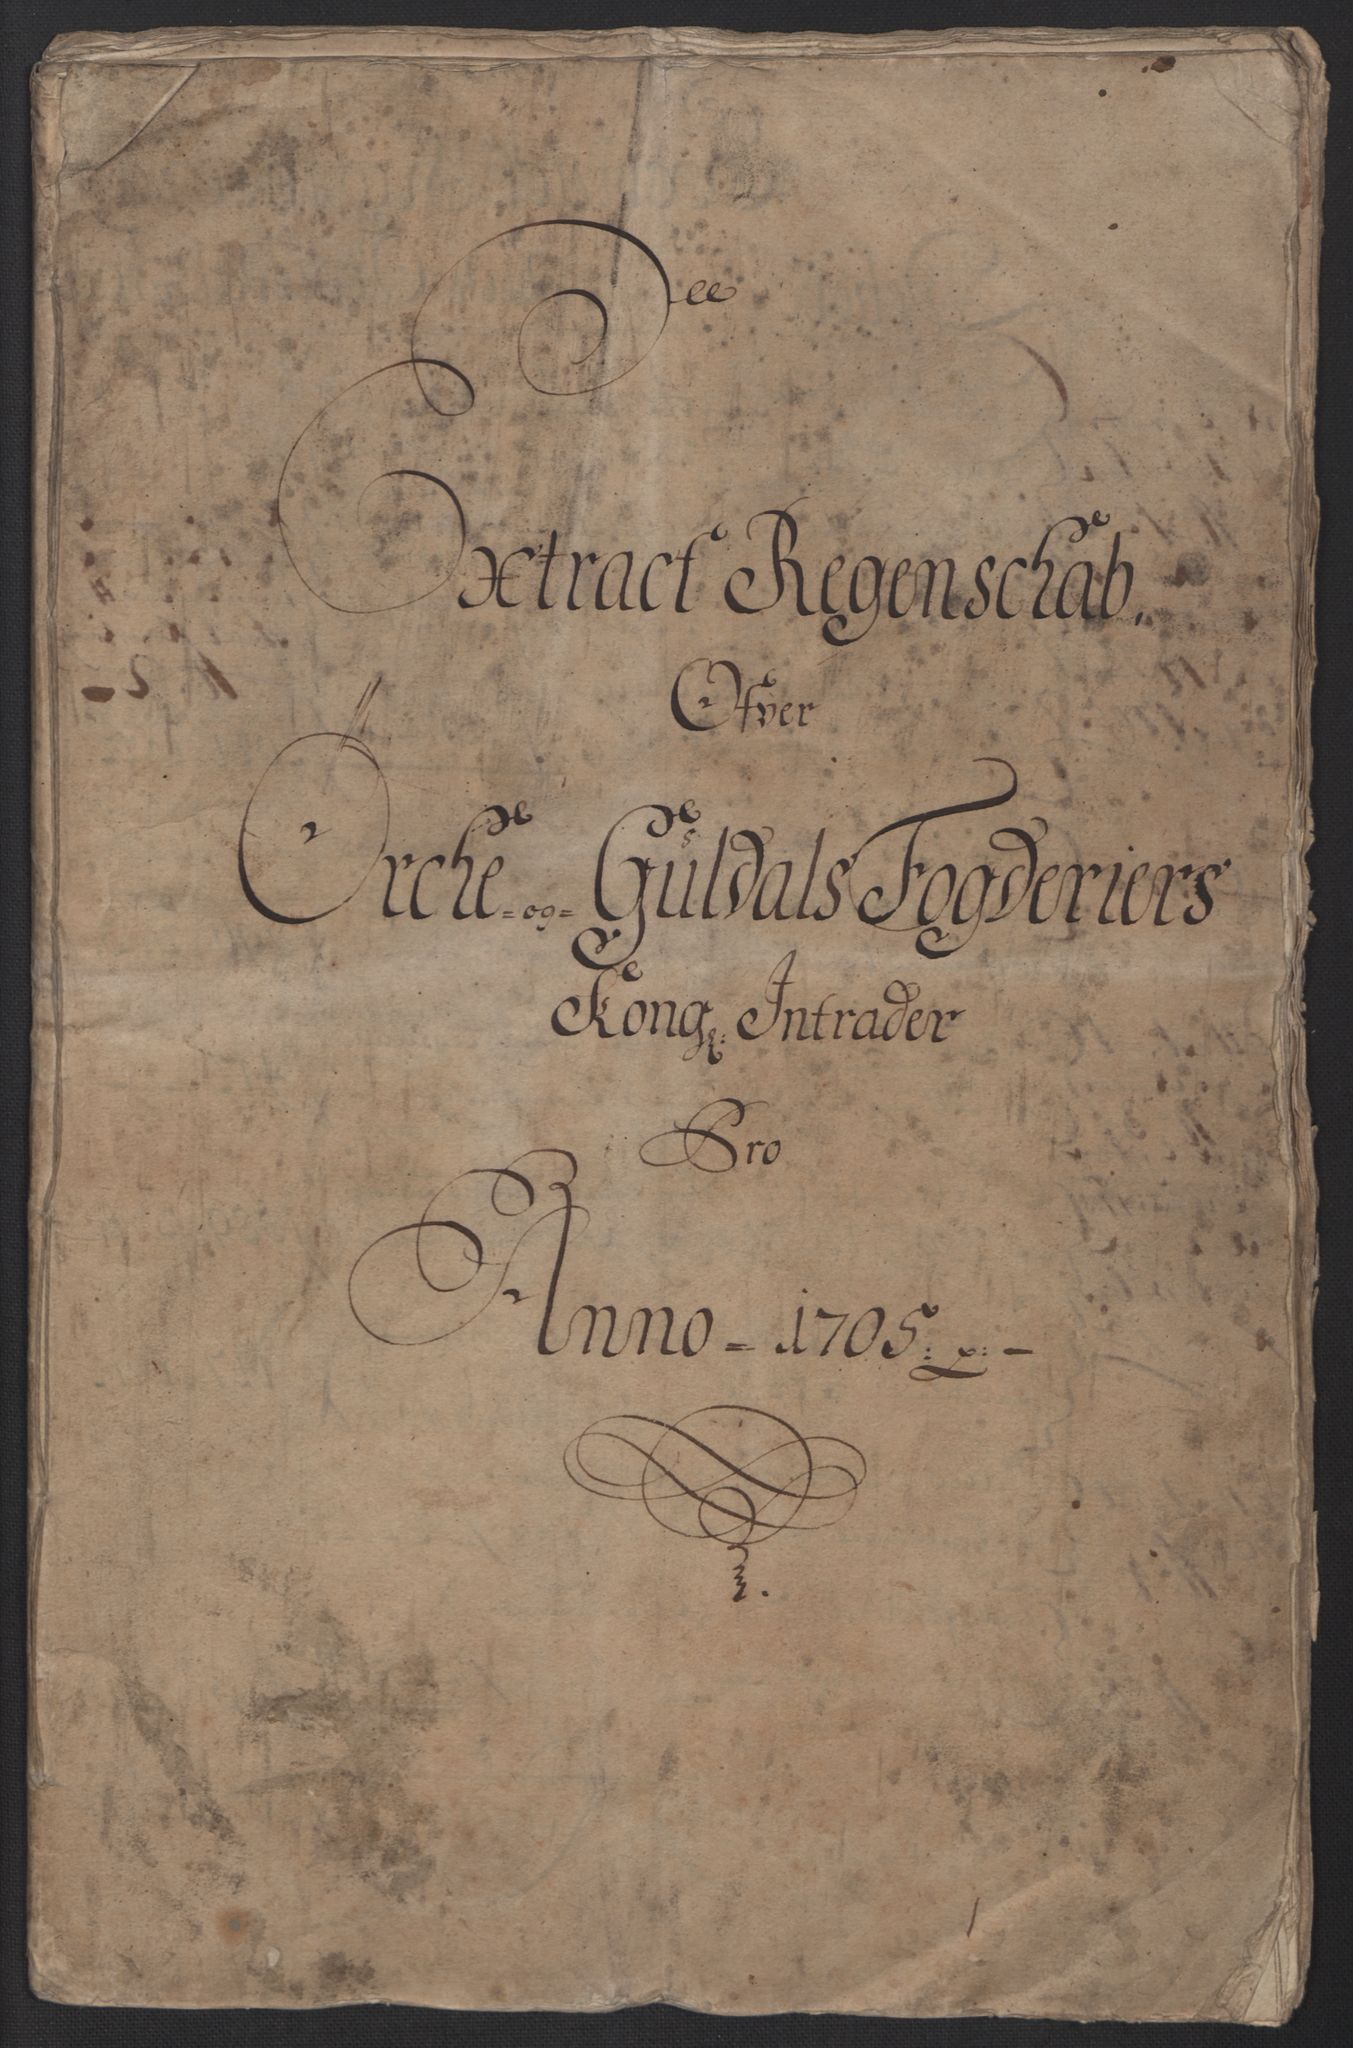 Extract Regenschab.
Ofver
Orche=og=Guldals Fogderiers
Kongl: Intrader
Pro
Anno=1705